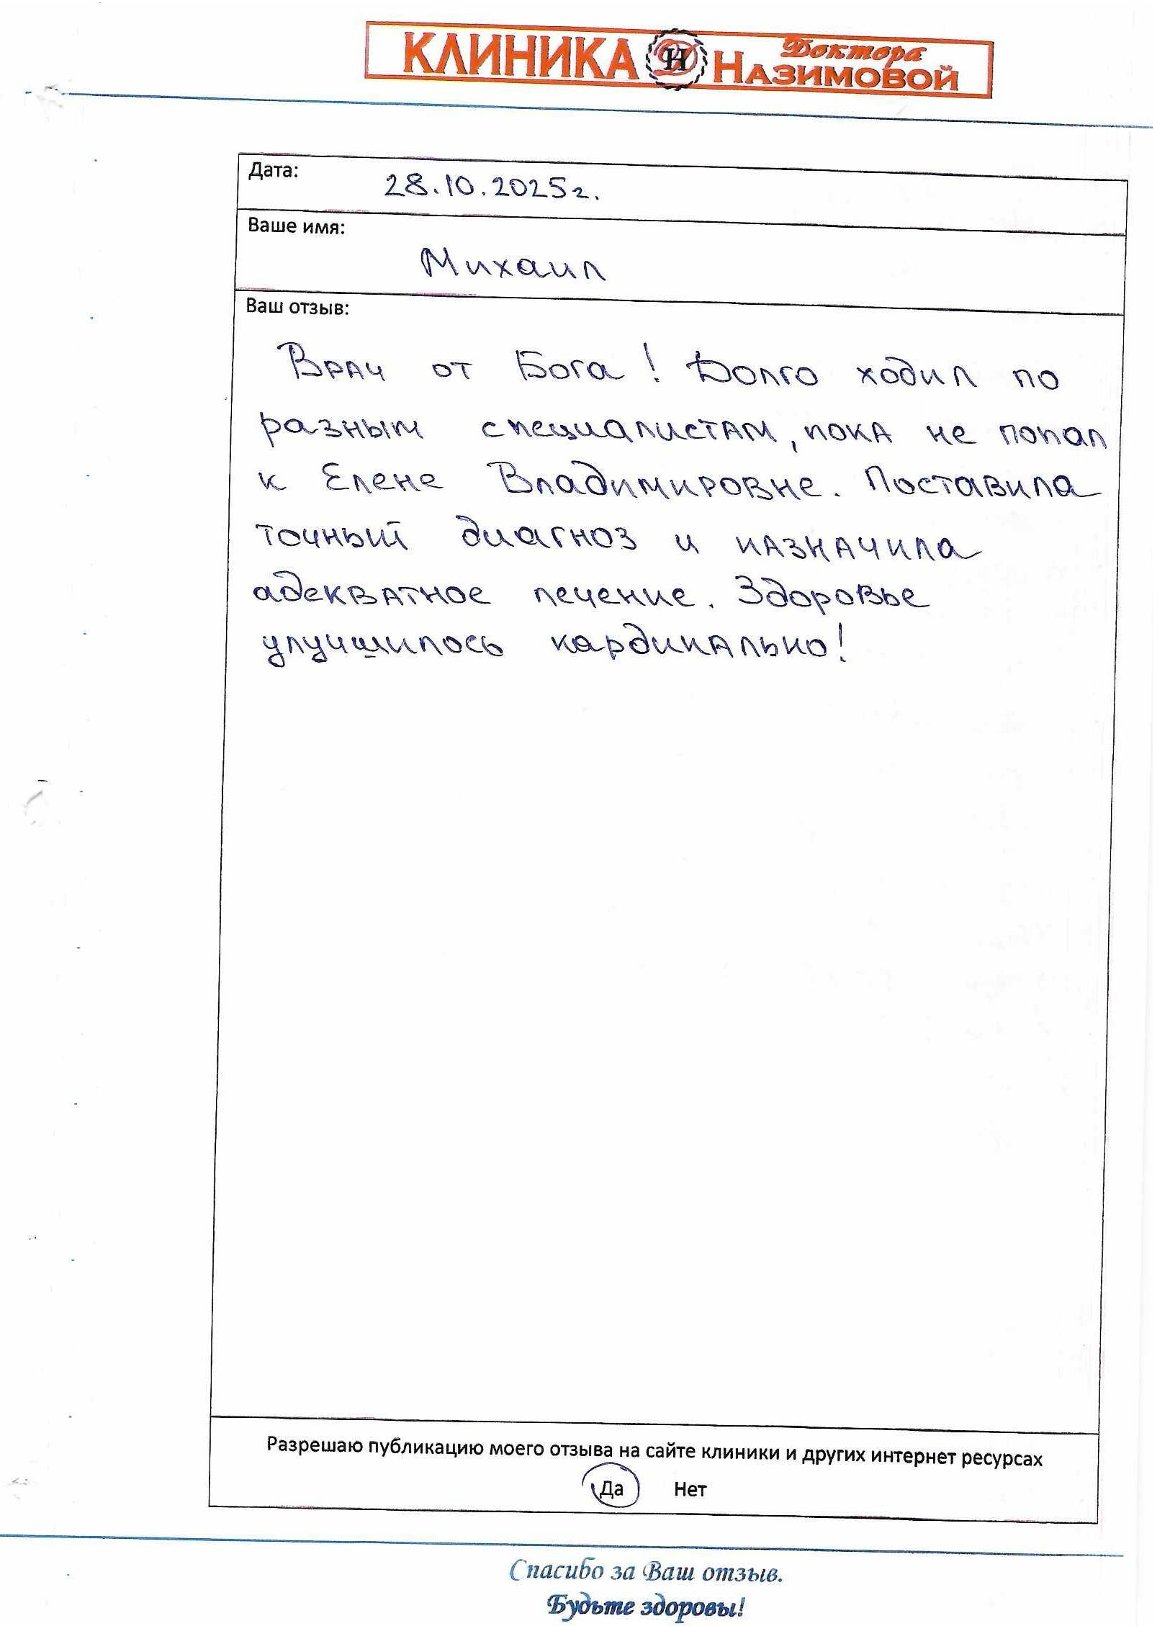 КЛИНИКА Доктора Назимовой
Дата: 28.10.2025г.
Ваше имя:
Михаил
Ваш отзыв:
Врач от Бога! Долго ходил по
разным специалистам, пока не попал
к Елене Владимировне. Поставила
точный диагноз и назначила
адекватное лечение. Здоровье
улучшилось кардинально!
Разрешаю публикацию моего отзыва на сайте клиники и других интернет ресурсах
Да Нет
Спасибо за Ваш отзыв.
Будьте здоровы!